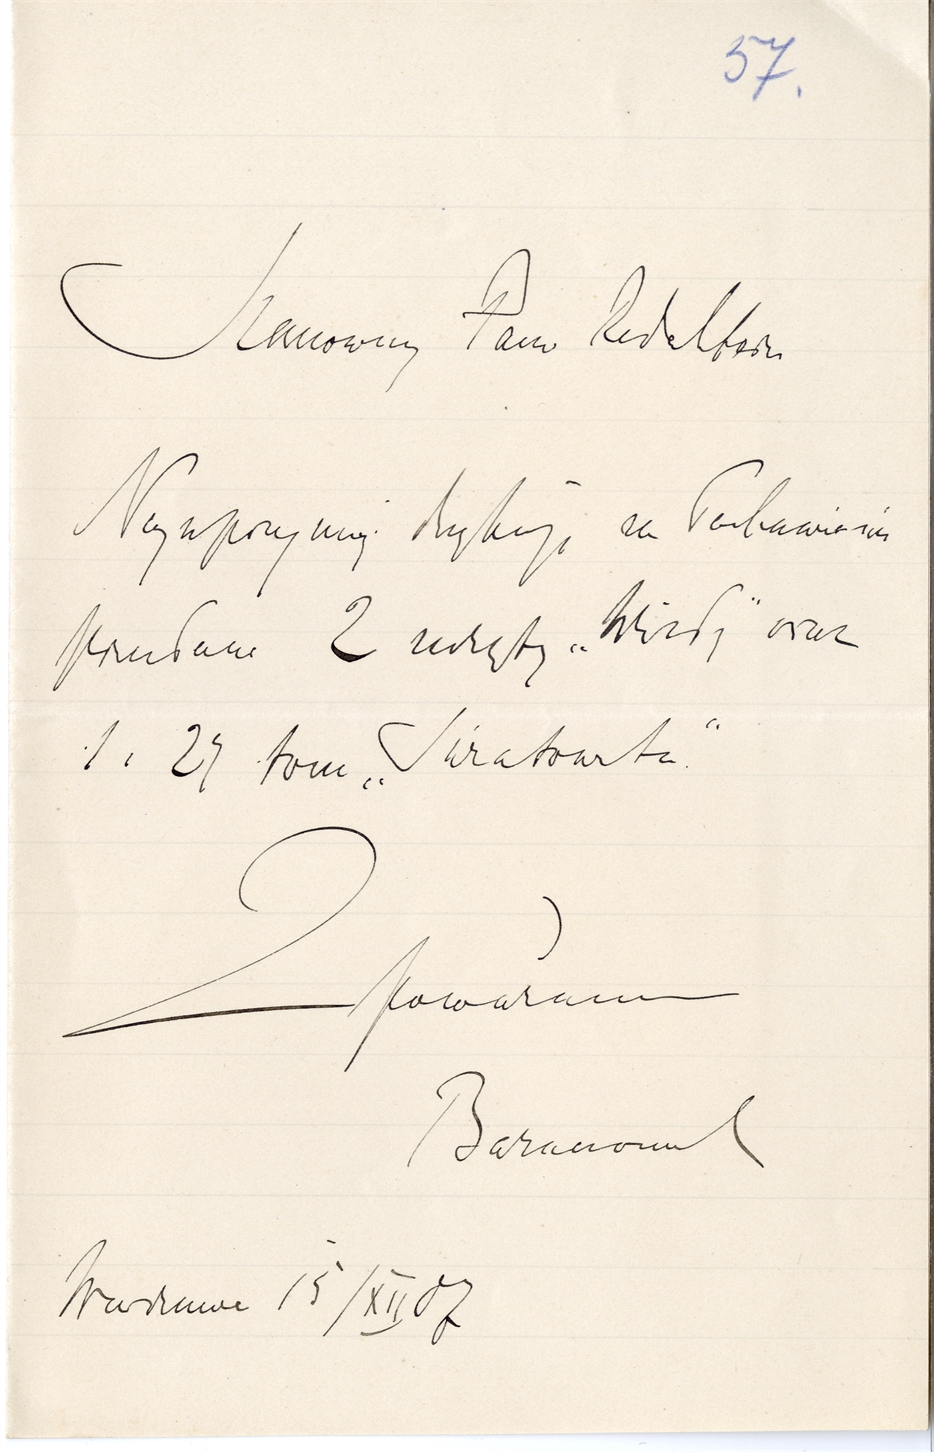 57.
Szanowny Panie Redaktorze
Najuprzejmiej dziękuję za łaskawie mi
przysłane 2 zeszyty „Wisły" oraz
1. i 2gi tom „Światowita".
Z poważaniem
Baranowski
Warszawa 15/XII 07